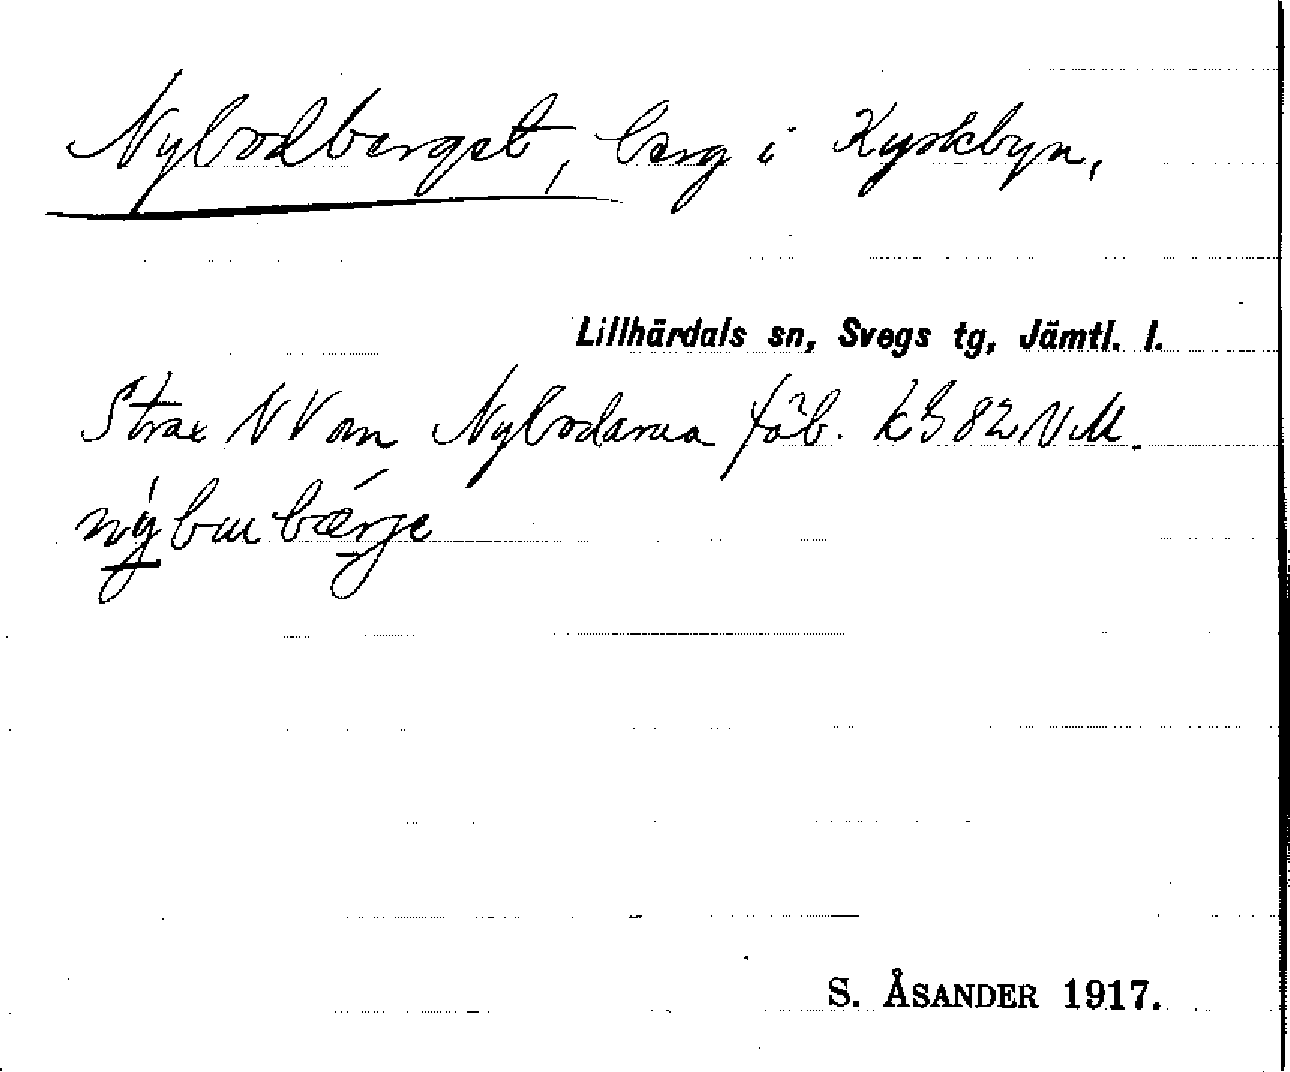 Nybodberget, berg i Kyrkbyn,
Lillhärdals sn, Svegs tg, Jämtl. l.
Strax NV om Nybodarna fäb. kB 82 NM.
nýbubærje
S. ÅSANDER 1917.